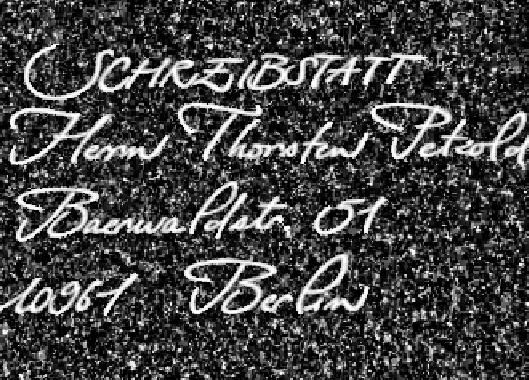 SCHREIBSTATT
Herrn Thorsten Petzold
Baerwaldstr. 51
10961 Berlin